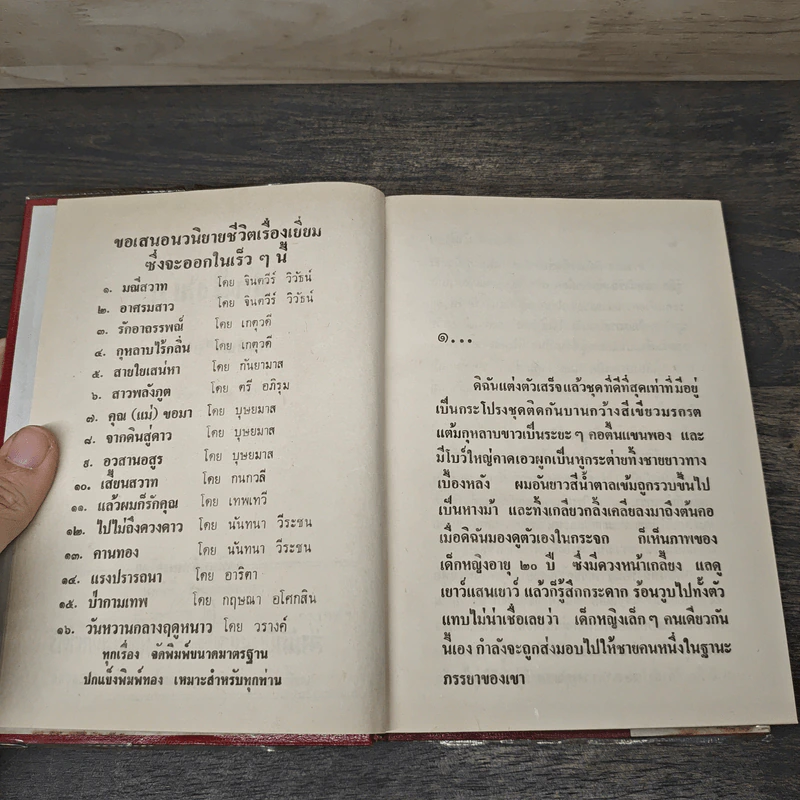 ขอเสนอนวนิยายชีวิตเรื่องเยี่ยม
ซึ่งจะออกในเร็ว ๆ นี้
๑. มณีสวาท โดย จินตวีร์ วิวัธน์
๒. อาศรมสาว โดย จินตวีร์ วิวัธน์
๓. รักอาถรรพณ์ โดย เกตุวดี
๔. กุหลาบไร้กลิ่น โดย เกตุวดี
๕. สายใยเสน่หา โดย กันยามาส
๖. สาวพลังภูต โดย ตรี อภิรุม
๗. คุณ (แม่) ขอมา โดย บุษยมาส
๘. จากดินสู่ดาว โดย บุษยมาส
๙. อวสานอสูร โดย บุษยมาส
๑๐. เสี้ยนสวาท โดย กนกวลี
๑๑. แล้วผมก็รักคุณ โดย เทพเทวี
๑๒. ไปไม่ถึงดวงดาว โดย นันทนา วีระชน
๑๓. คานทอง โดย นันทนา วีระชน
๑๔. แรงปรารถนา โดย อาริตา
๑๕. ป่ากามเทพ โดย กฤษณา อโศกสิน
๑๖. วันหวานกลางฤดูหนาว โดย วรางค์
ทุกเรื่อง จัดพิมพ์ขนาดมาตรฐาน
ปกแข็งพิมพ์ทอง เหมาะสำหรับทุกท่าน
๑...
ดิฉันแต่งตัวเสร็จแล้วชุดที่ดีที่สุดเท่าที่มีอยู่
เป็นกระโปรงชุดติดกันบานกว้างสีเขียวมรกรต
แต้มกุหลาบขาวเป็นระยะๆ คอตื้นแขนพอง และ
มีโบว์ใหญ่คาดเอวผูกเป็นหูกระต่ายทิ้งชายยาวทาง
เบื้องหลัง ผมอันยาวสีน้ำตาลเข้มถูกรวบขึ้นไป
เป็นหางม้า และทิ้งเกลียวกลิ้งเคลียลงมาถึงต้นคอ
เมื่อดิฉันมองดูตัวเองในกระจก ก็เห็นภาพของ
เด็กหญิงอายุ ๒๐ ปี ซึ่งมีดวงหน้าเกลี้ยง แลดู
เยาว์แสนเยาว์ แล้วก็รู้สึกกระดาก ร้อนวูบไปทั้งตัว
แทบไม่น่าเชื่อเลยว่า เด็กหญิงเล็กๆ คนเดียวกัน
นี้เอง กำลังจะถูกส่งมอบไปให้ชายคนหนึ่งในฐานะ
ภรรยาของเขา